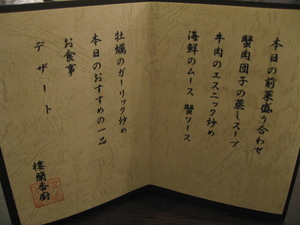 本日の前菜盛り合わせ
蟹肉団子の蒸しスープ
牛肉のエスニック炒め
海鮮のムース 蟹ソース
牡蠣のガーリック炒め
本日のおすすめの一品
お食事
デザート
樓蘭香厨